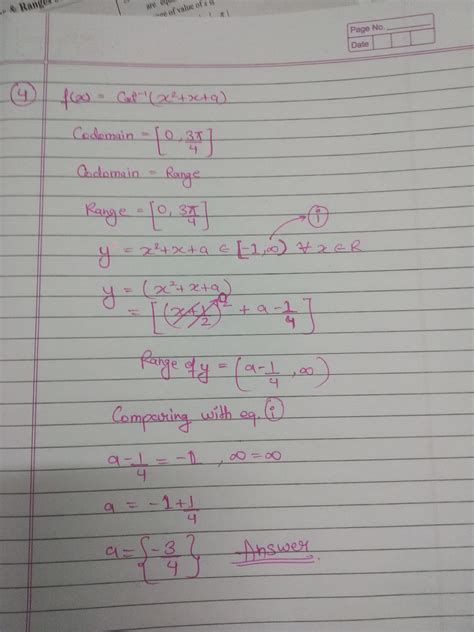 & Ranges
are equ
nge of value of s is
Page No.
Date
④ f(x) = Cot⁻¹(x²+x+a)
Codomain = [0, 3π/4]
Codomain = Range
Range = [0, 3π/4]
(i)
y = x²+x+a ∈ [-1,∞) ∀ x ∈ R
y = (x²+x+a)
= [(x+1/2)² + a - 1/4]
0
Range of y = (a-1/4, ∞)
Comparing with eq. (i)
a-1/4 = -1 , ∞=∞
a = -1+1/4
a = {-3/4} Answer